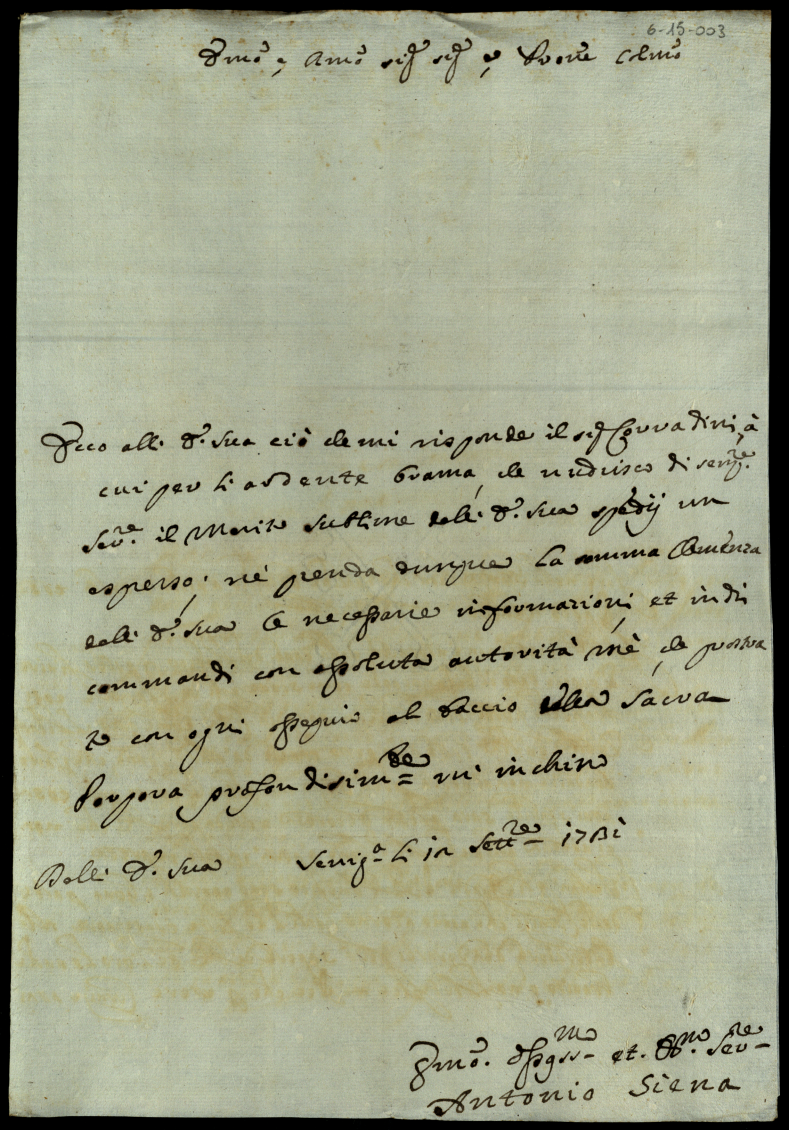 6-15-003
Emo, e, Amo sig sig e, Prone Colmo
Ecco all: E. sua ciò che mi risponde il sig Corradini, à
cui per l'ardente brama, che nudrisco di sempre
Ser.re il Merito sublime dell: E. sua spedij un
espresso; nè prenda dunque la somma Clemenza
dell: E. sua le necessarie informazioni, et indi
commandi con assoluta autorità mè, che prostra
to con ogni ossequio al baccio della Sacra
Porpora profondisim.te mi inchino
Dell: E. sua Senig.a li 12 Sett.re
Emo. et. Ser.re
Antonio Siena